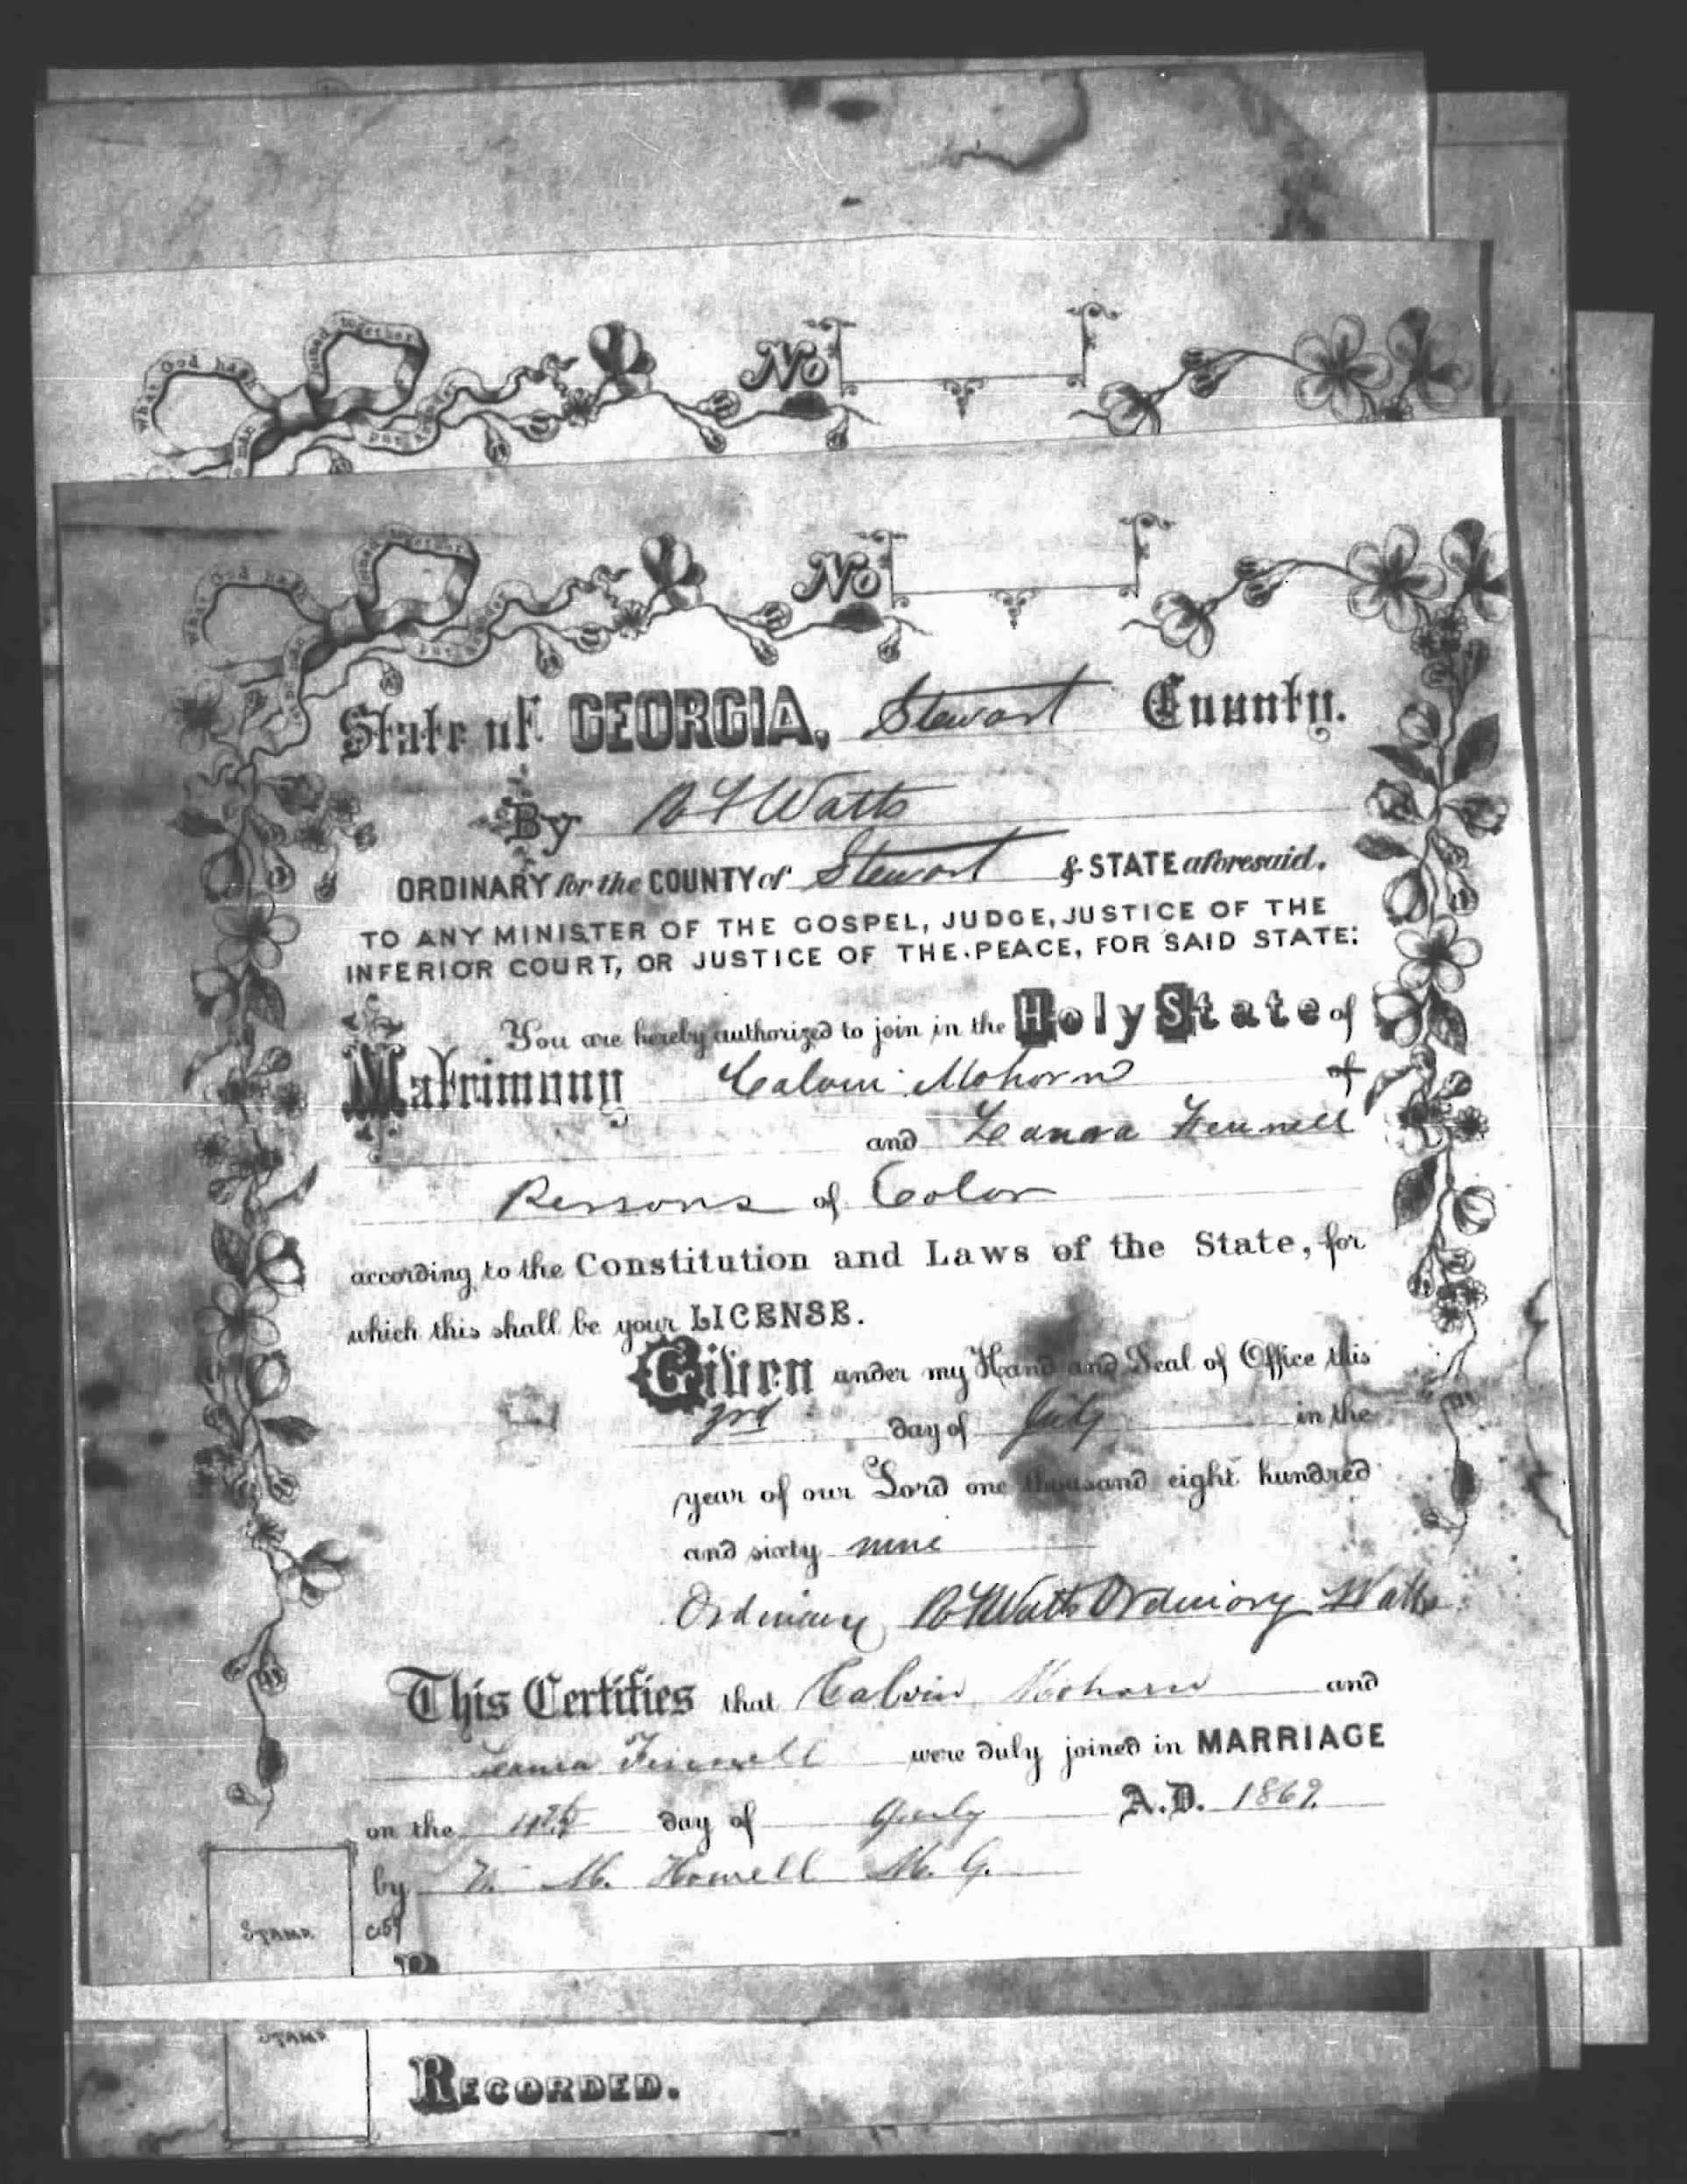 What God hath joined together
No
What God hath joined together
No
State of GEORGIA, Stewart County.
By Watts
ORDINARY for the COUNTY of Stewart & STATE aforesaid.
TO ANY MINISTER OF THE GOSPEL, JUDGE, JUSTICE OF THE
INFERIOR COURT, OR JUSTICE OF THE PEACE, FOR SAID STATE:
You are hereby authorized to join in the Holy State of
Matrimony Calvin Mohorn &
and Leanora Fennell
Persons of Color
according to the Constitution and Laws of the State, for
which this shall be your LICENSE.
Given under my Hand and Seal of Office this
3rd day of July in the
year of our Lord one thousand eight hundred
and sixty nine
Ordinary Watts Ordinary Watts
This Certifies that Calvin Mohorn and
Fennell were duly joined in MARRIAGE
on the 4th day of July A.D. 1869.
by M. Howell M. G.
STAMP.
STAMP.
RECORDED.